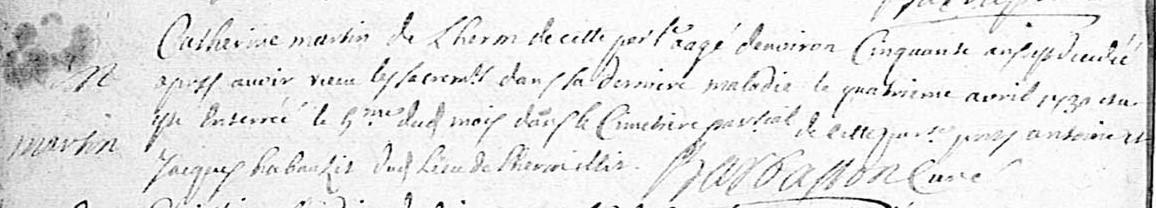 Catherine martin de Lherm de cette par.se aagé denviron Cinquante ans est decedée
apres avoir receu les sacremts dans sa derniere maladie le quatrieme avril 1730 et a
M
martin
este Enterrée le 5me dud mois dans le Cimetiere par.ial de cette par.se pnts antoine et
Jacques habants dud Lieu de Lherm illit.
Curé